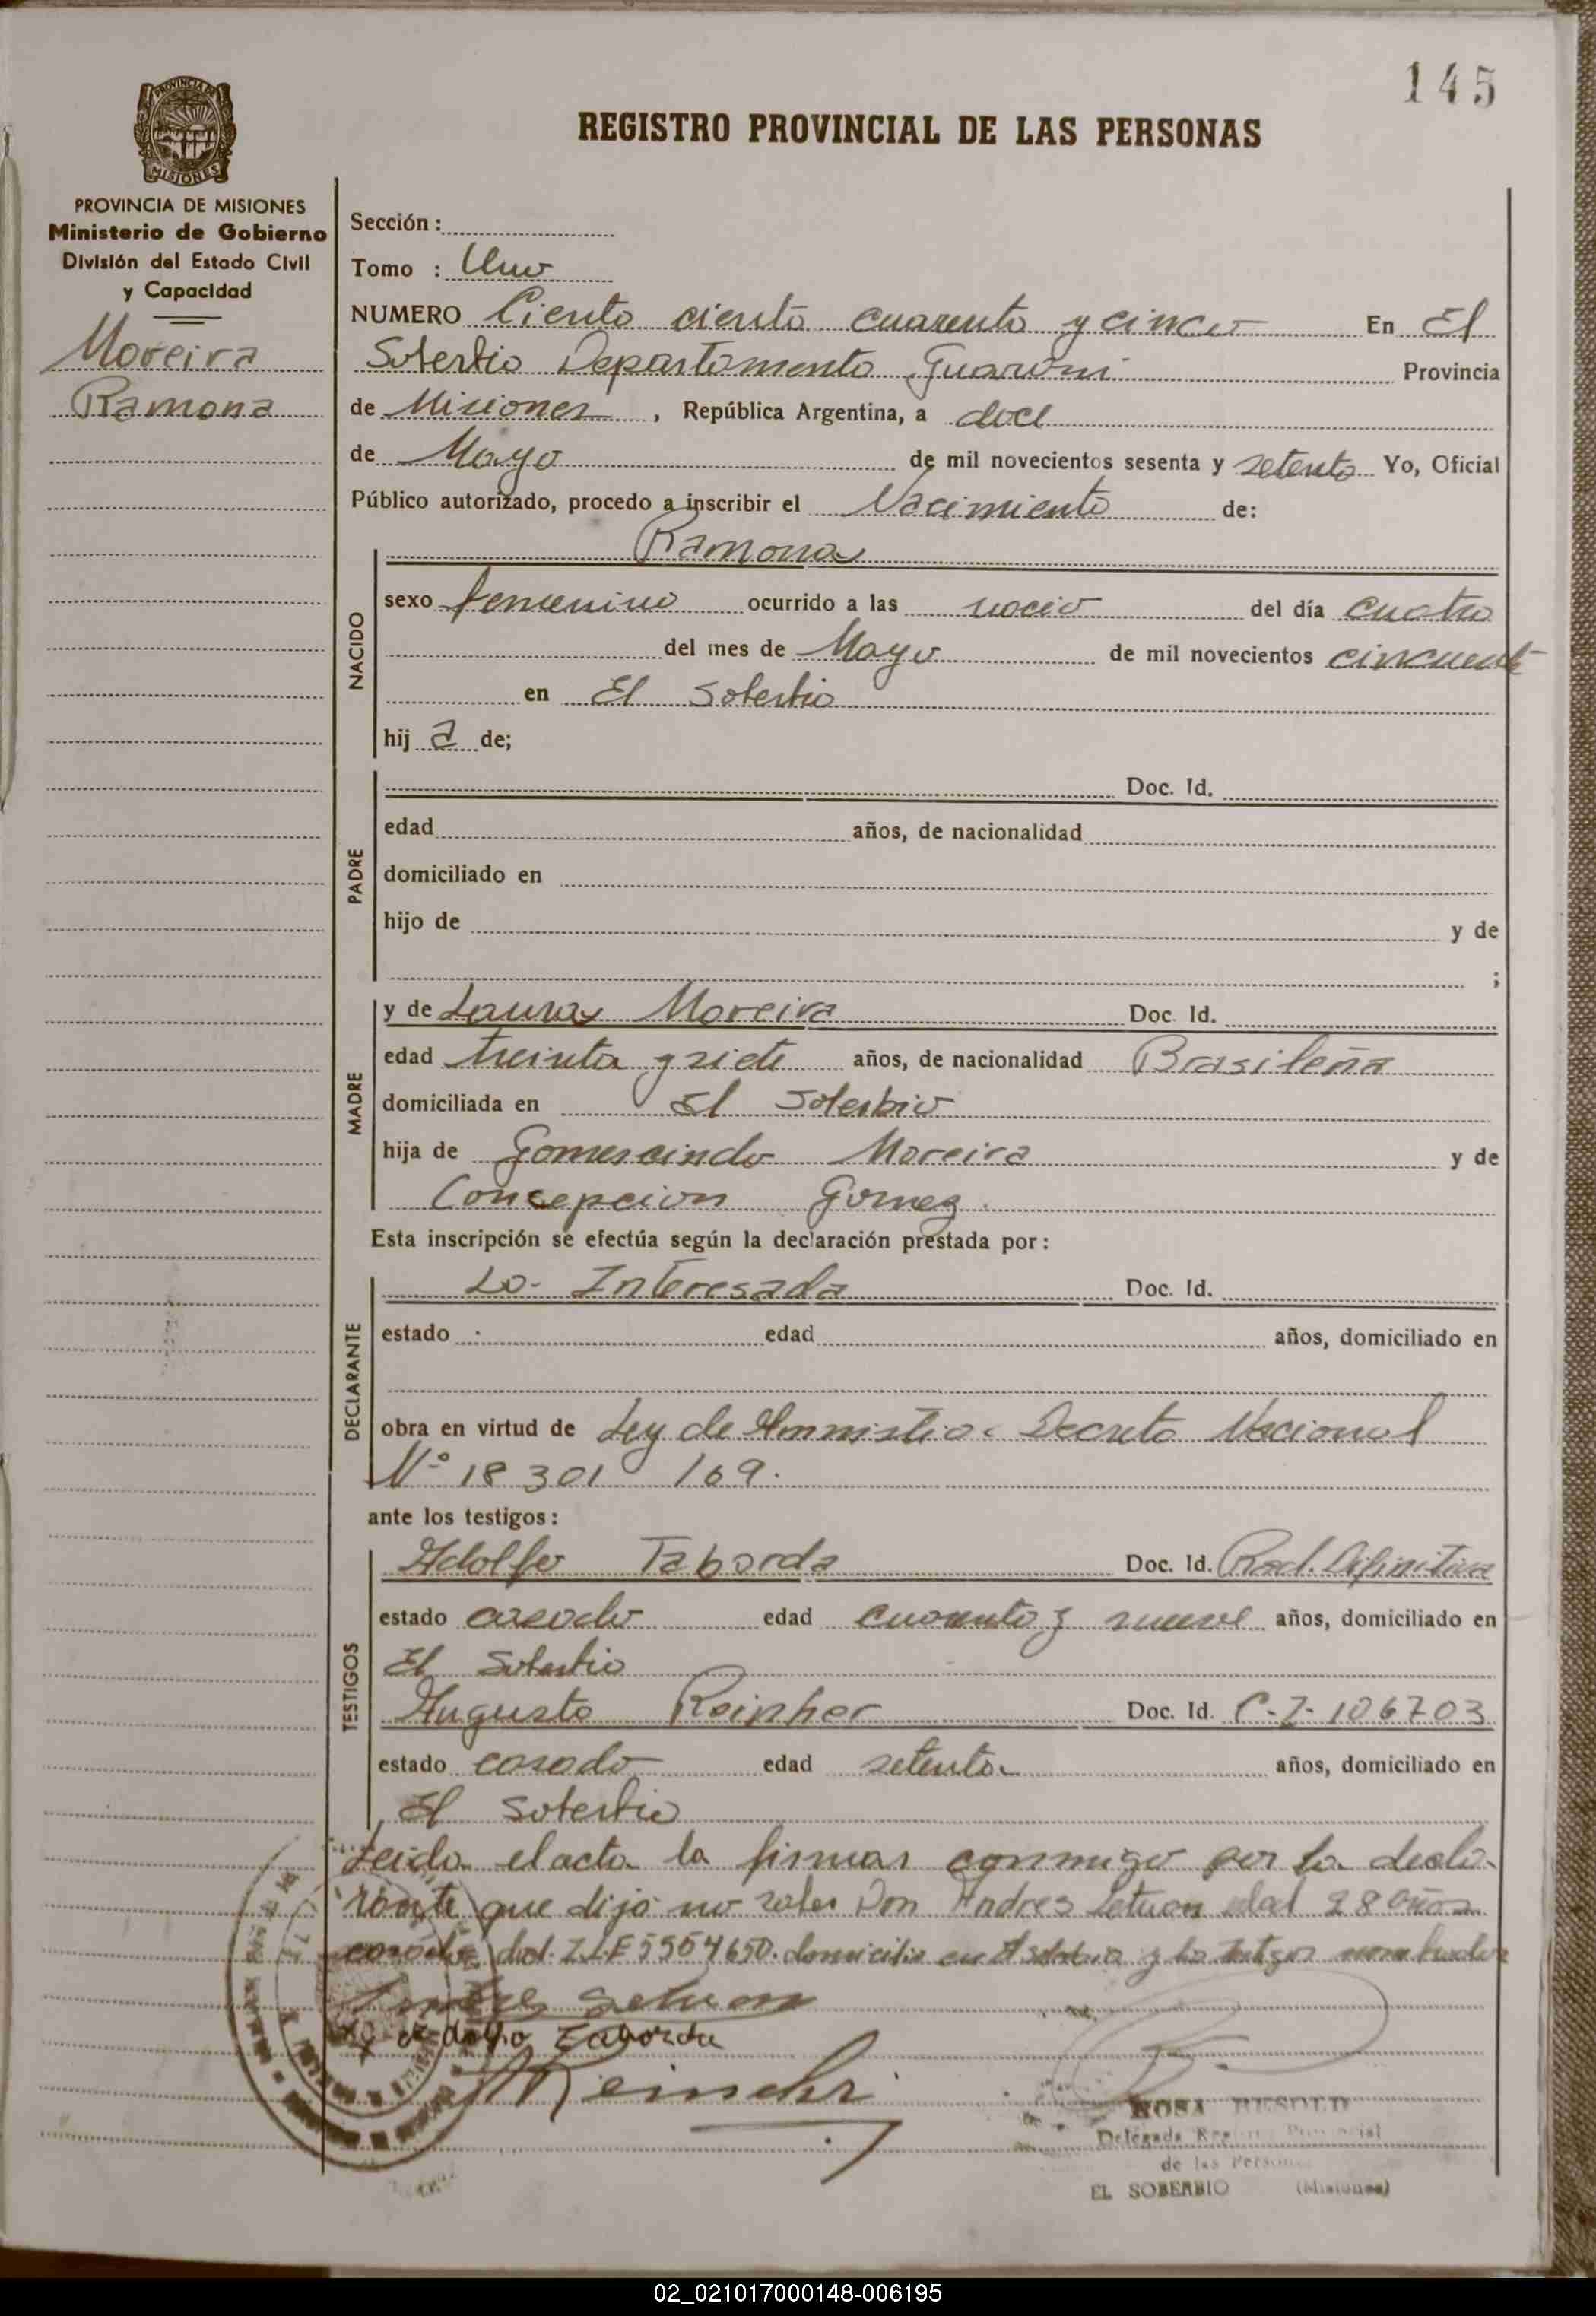 145
REGISTRO PROVINCIAL DE LAS PERSONAS
PROVINCIA DE MISIONES
Ministerio de Gobierno
División del Estado Civil
y Capacidad
Moreira
Ramona
Sección :
Tomo : Uno
NUMERO Ciento ciento cuarenta y cinco En El
Soberbio Departamento Guarani Provincia
de Misiones , República Argentina, a doce
de Mayo de mil novecientos sesenta y setenta Yo, Oficial
Público autorizado, procedo a inscribir el Nacimiento de:
Ramona
NACIDO
sexo femenino ocurrido a las nacio del día cuatro
del mes de Mayo de mil novecientos cincuenta
en El Soberbio
hij a de;
PADRE
Doc. Id.
edad años, de nacionalidad
domiciliado en
hijo de y de
;
MADRE
y de Laura Moreira Doc. Id.
edad treinta y siete años, de nacionalidad Brasileña
domiciliada en El Soberbio
hija de Gomercindo Moreira y de
Concepcion Gomez.
Esta inscripción se efectúa según la declaración prestada por:
DECLARANTE
La Interesada Doc. Id.
estado edad años, domiciliado en
obra en virtud de Ley de Amnistia Decreto Nacional
Nº 18301/69.
ante los testigos:
TESTIGOS
Adolfo Taborda Doc. Id. Rad. Difinitiva
estado casado edad cuarenta y nueve años, domiciliado en
El Soberbio
Augusto Reinher Doc. Id. C-I-106703
estado casado edad setenta años, domiciliado en
El Soberbio
Leida el acta la firman conmigo por la decla-
rante que dijo no saber Don Andres edad 28 años
casado 5504650. domicilio en El Soberbio y los testigos nombrados
Taborda
ROSA
Delegada Registro Provincial
de las Personas
EL SOBERBIO (Misiones)
02_021017000148-006195